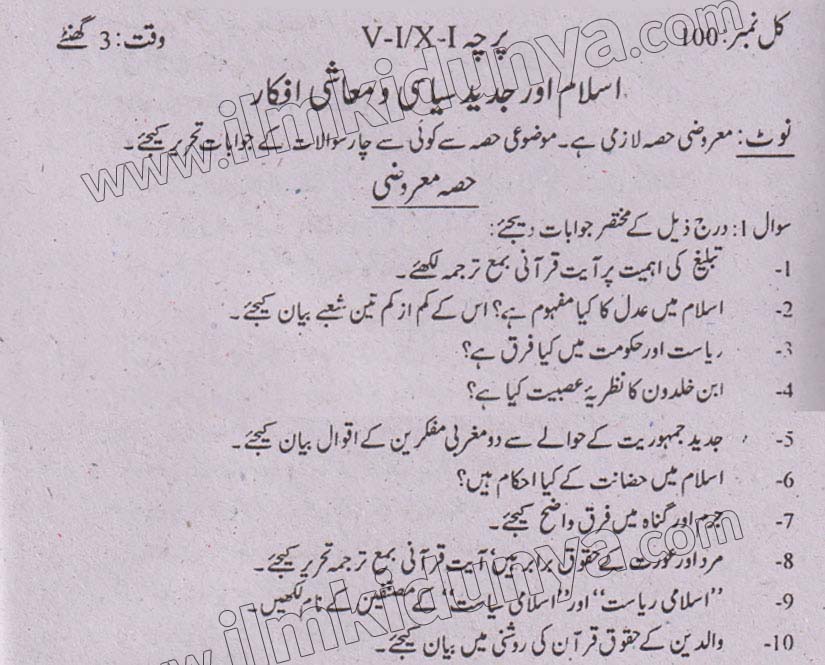 کل نمبر: 100 پرچہ V-I/X-I وقت: 3 گھنٹے
اسلام اور جدید سیاسی و معاشی افکار
نوٹ: معروضی حصہ لازمی ہے۔ موضوعی حصہ سے کوئی سے چار سوالات کے جوابات تحریر کیجئے۔
حصہ معروضی
سوال 1: درج ذیل کے مختصر جوابات دیجئے:
1- تبلیغ کی اہمیت پر آیت قرآنی بمع ترجمہ لکھئے۔
2- اسلام میں عدل کا کیا مفہوم ہے؟ اس کے کم از کم تین شعبے بیان کیجئے۔
3- ریاست اور حکومت میں کیا فرق ہے؟
4- ابن خلدون کا نظریۂ عصبیت کیا ہے؟
5- جدید جمہوریت کے حوالے سے دو مغربی مفکرین کے اقوال بیان کیجئے۔
6- اسلام میں حضانت کے کیا احکام ہیں؟
7- جرم اور گناہ میں فرق واضح کیجئے۔
8- مرد اور عورت کے حقوق برابر ہیں‘ آیت قرآنی بمع ترجمہ تحریر کیجئے۔
9- ’’اسلامی ریاست‘‘ اور ’’اسلامی سیاست‘‘ کے مصنفین کے نام لکھیں۔
10- والدین کے حقوق قرآن کی روشنی میں بیان کیجئے۔
www.ilmkidunya.com
www.ilmkidunya.com